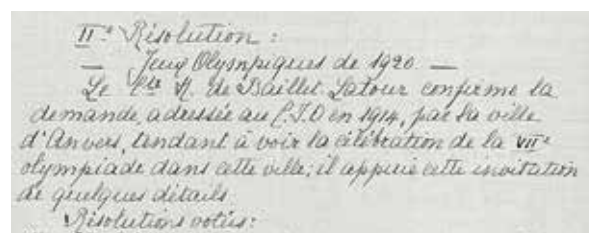 IIe Résolution :
— Jeux Olympiques de 1920 —
Le Cte H. de Baillet Latour confirme la
demande, adressée au C.I.O en 1914, par la ville
d'Anvers, tendant à voir la célébration de la VIIe
olympiade dans cette ville; il appuie cette invitation
de quelques détails
Résolutions votées: